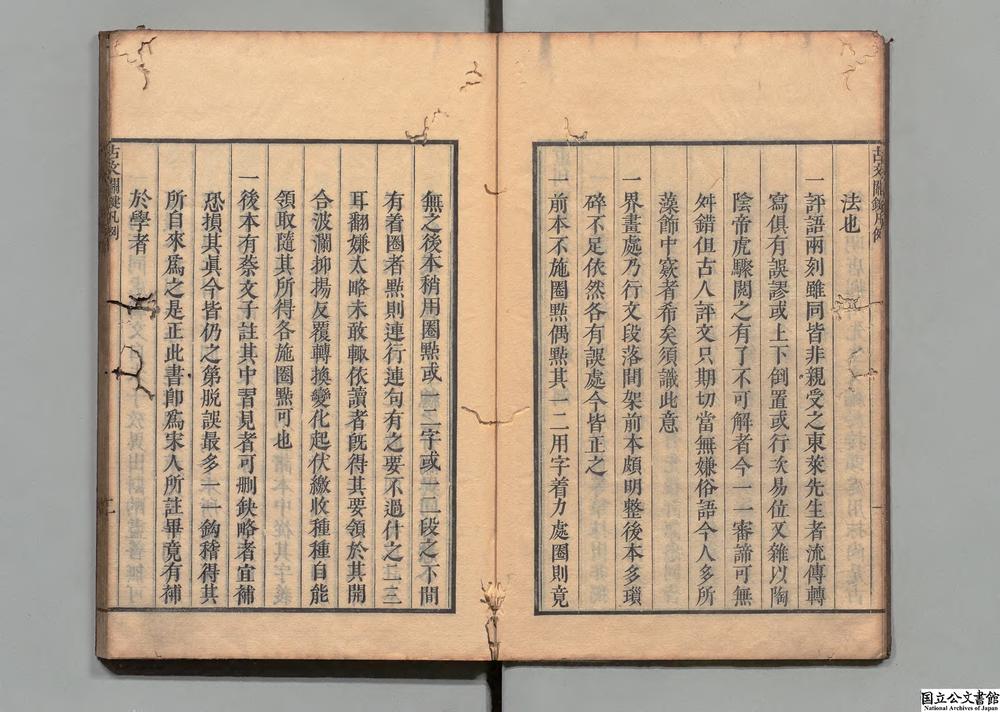 法也
一評語兩刻雖同皆非親受之東萊先生者流傳轉
寫俱有誤謬或上下倒置或行次易位又雜以陶
陰帝虎驟閱之有了不可解者今一一審諦可無
舛錯但古人評文只期切當無嫌俗語今人多所
藻飾中窾者希矣須識此意
一界畫處乃行文段落間架前本頗明整後本多瑣
碎不足依然各有誤處今皆正之
一前本不施圈點偶點其一二用字着力處圈則竟
無之後本稍用圈點或一二字或一二段之不間
有着圈者點則連行連句有之要不過什之二三
耳翻嫌太略未敢輙依讀者旣得其要領於其開
合波瀾抑揚反覆轉換變化起伏繳收種種自能
領取隨其所得各施圈點可也
一後本有蔡文子註其中習見者可删缺略者宜補
恐損其眞今皆仍之第脫誤最多一一鈎稽得其
所自來爲之是正此書卽爲宋人所註畢竟有補
於學者
古文關鍵凡例
古文關鍵凡例
二
国立公文書館
National Archives of Japan